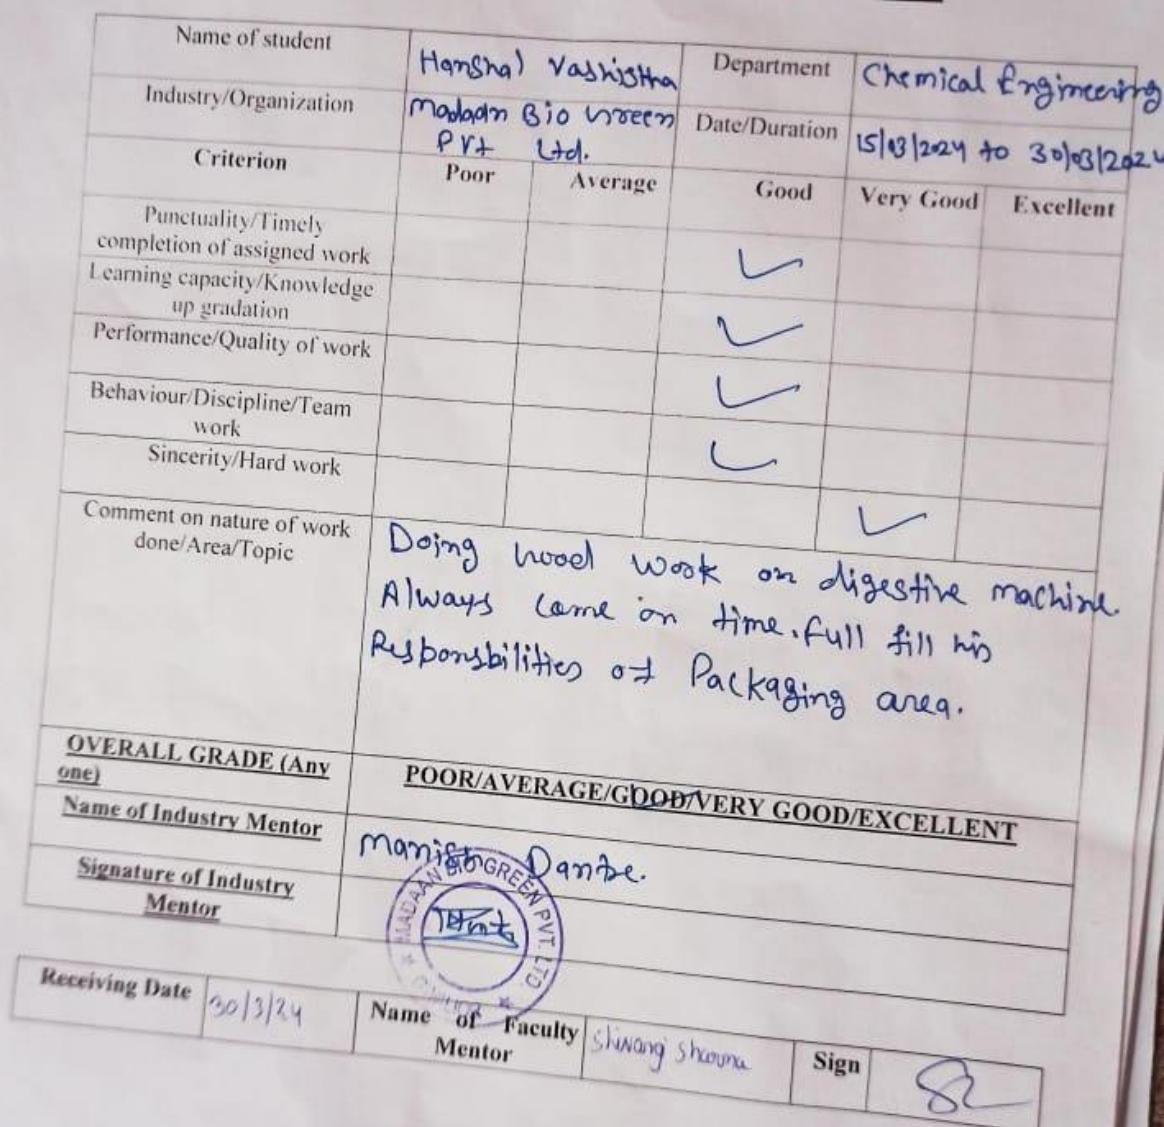 Name of student Hanshal Vashistha Department Chemical Engineering
Industry/Organization Madaan Bio Green Pvt Ltd. Date/Duration 15/03/2024 to 30/03/2024
Criterion Poor Average Good Very Good Excellent
Punctuality/Timely
completion of assigned work
Learning capacity/Knowledge
up gradation
Performance/Quality of work
Behaviour/Discipline/Team
work
Sincerity/Hard work
Comment on nature of work
done/Area/Topic
Doing Good work on digestive machine.
Always come on time. full fill his
Responsbilities of Packaging area.
OVERALL GRADE (Any
one)
POOR/AVERAGE/GOOD/VERY GOOD/EXCELLENT
Name of Industry Mentor Manish
Signature of Industry
Mentor
MADAAN BIO GREEN PVT. LTD
Receiving Date 30/3/24 Name of Faculty
Mentor
Shivangi Sharma Sign